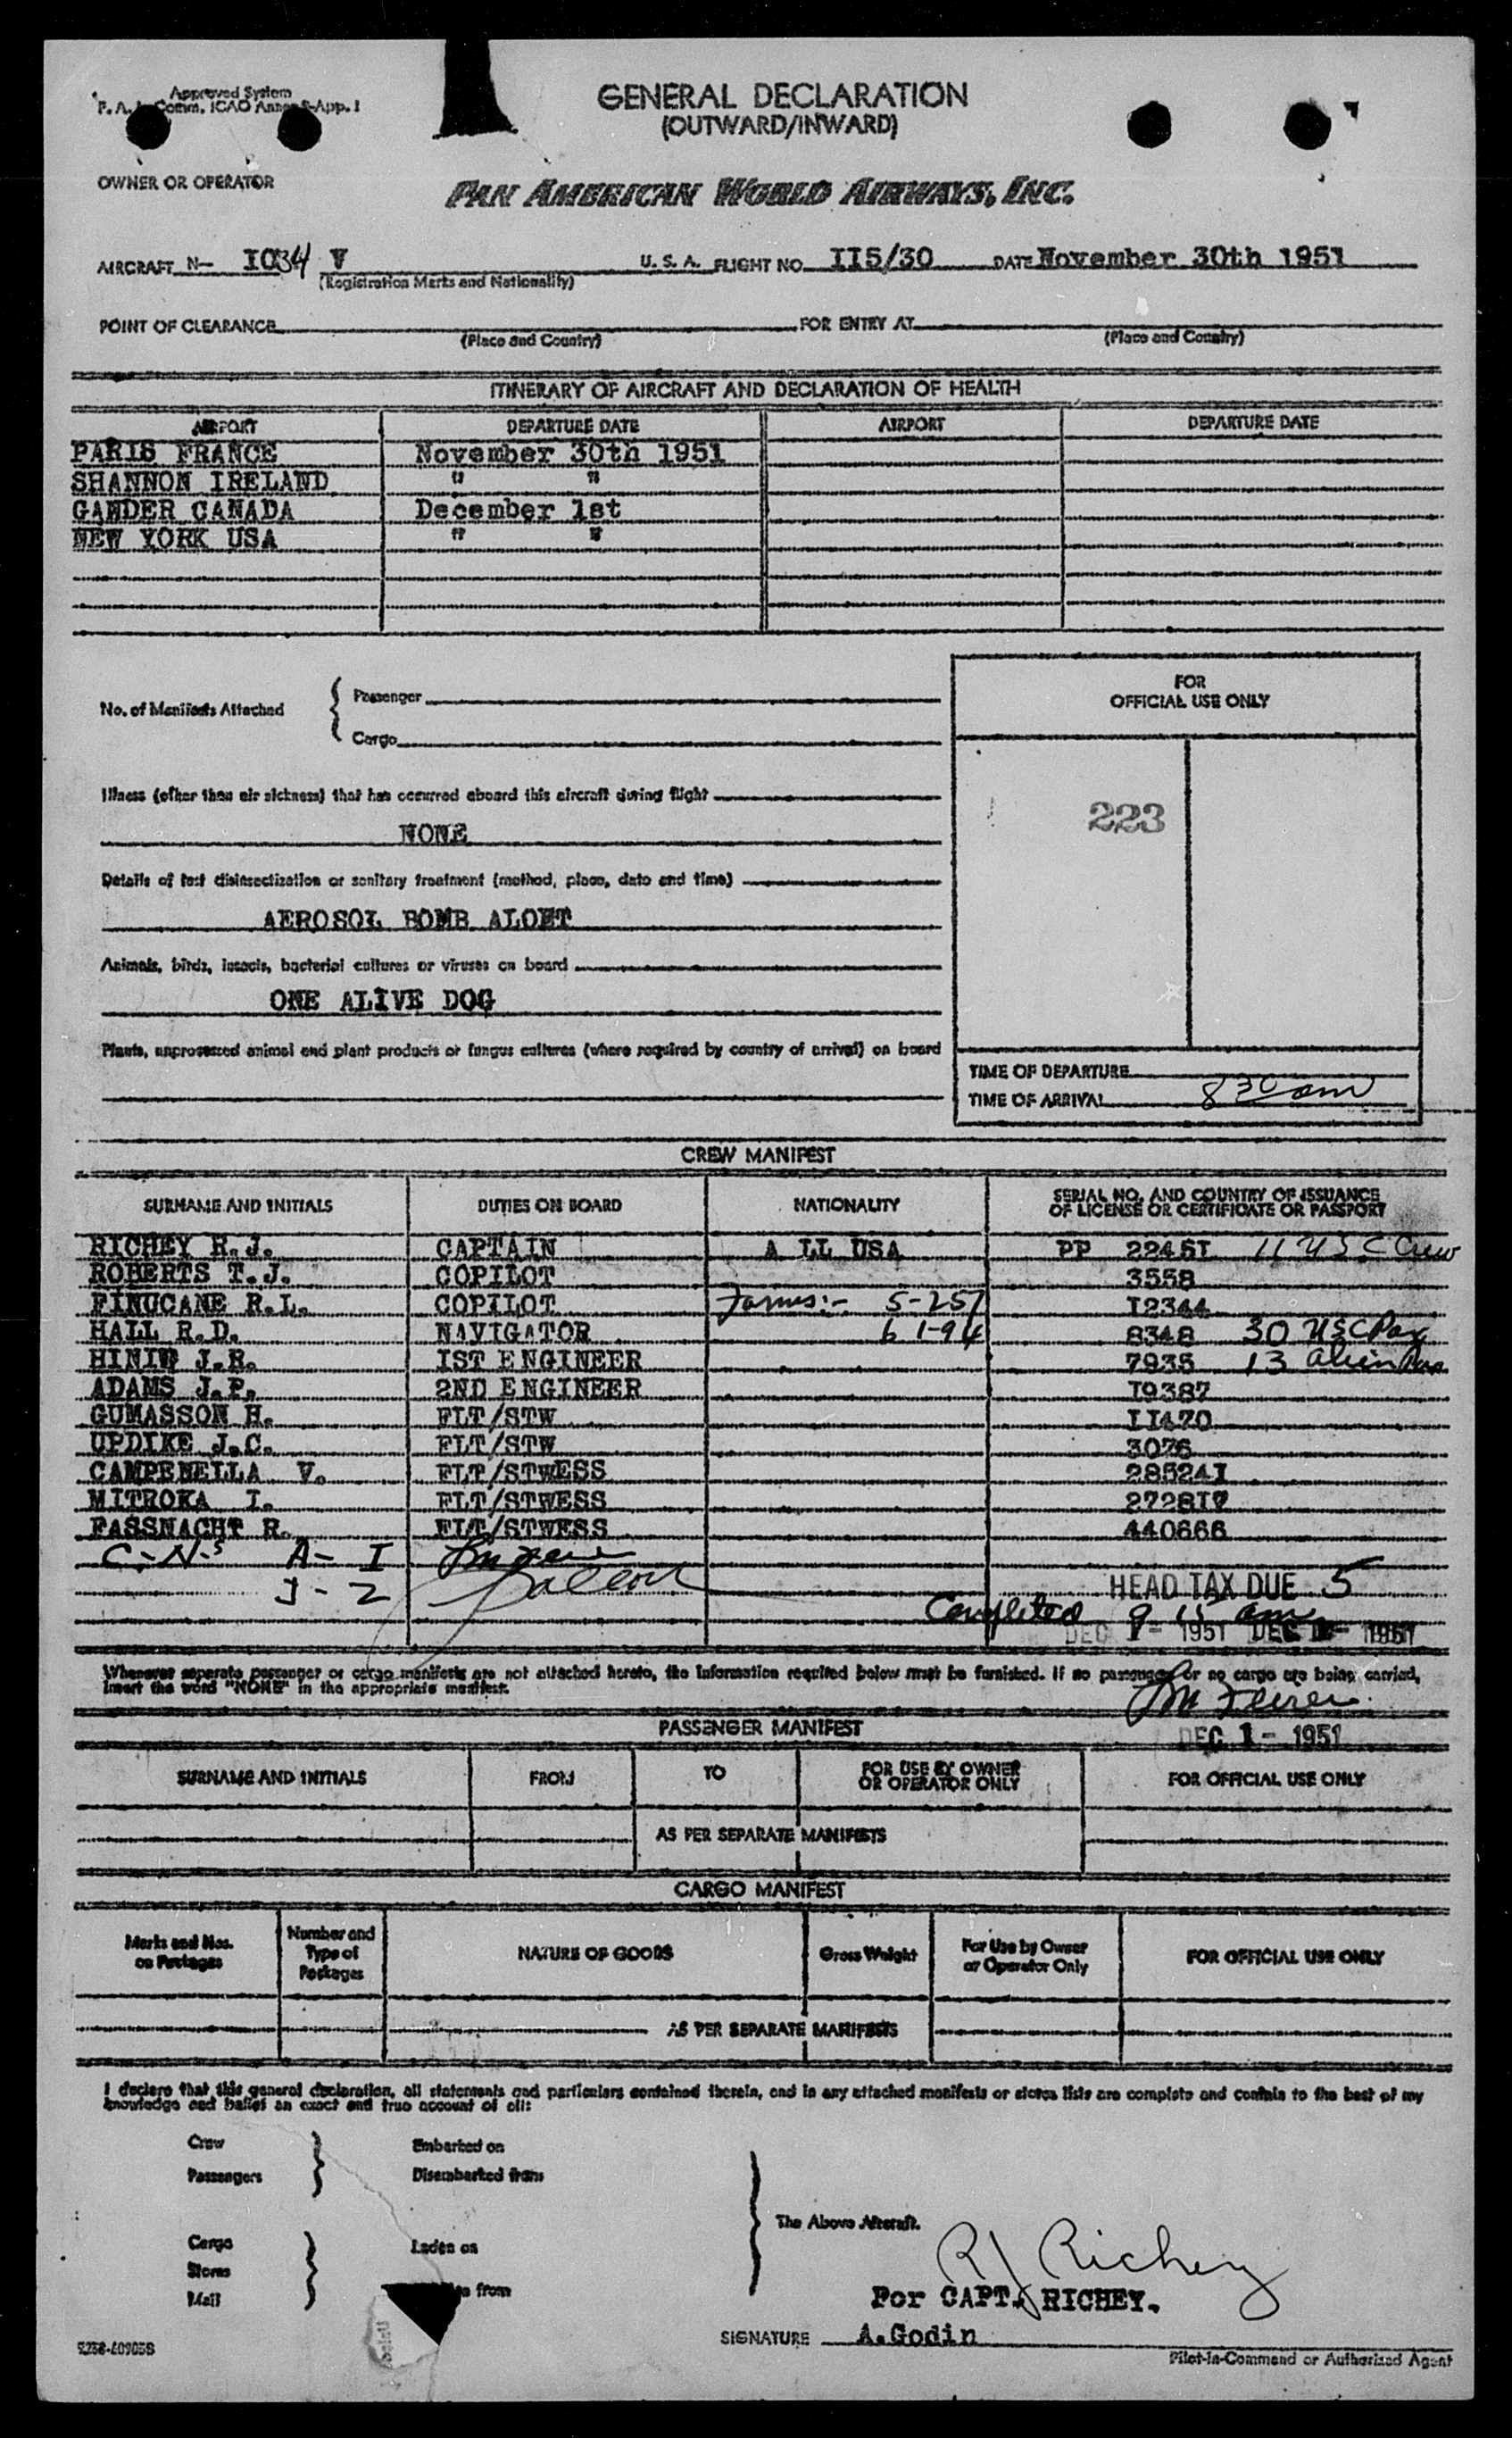 Approved System
F. A. L. Comm. ICAO Annex 9-App. 1
GENERAL DECLARATION
(OUTWARD/INWARD)
OWNER OR OPERATOR
PAN AMERICAN WORLD AIRWAYS, INC.
AIRCRAFT N- I034 V U. S. A. FLIGHT NO. II5/30 DATE November 30th 1951
(Registration Marks and Nationality)
POINT OF CLEARANCE FOR ENTRY AT
(Place and Country) (Place and Country)
ITINERARY OF AIRCRAFT AND DECLARATION OF HEALTH
AIRPORT DEPARTURE DATE AIRPORT DEPARTURE DATE
PARIS FRANCE November 30th 1951
SHANNON IRELAND " "
GANDER CANADA December 1st
NEW YORK USA " "
No. of Manifests Attached { Passenger
Cargo
FOR
OFFICIAL USE ONLY
Illness (other than air sickness) that has occurred aboard this aircraft during flight
NONE
223
Details of last disinsectization or sanitary treatment (method, place, date and time)
AEROSOL BOMB ALOET
Animals, birds, insects, bacterial cultures or viruses on board
ONE ALIVE DOG
Plants, unprocessed animal and plant products or fungus cultures (where required by country of arrival) on board
TIME OF DEPARTURE
TIME OF ARRIVAL 8 30 am
CREW MANIFEST
SURNAME AND INITIALS DUTIES ON BOARD NATIONALITY SERIAL NO. AND COUNTRY OF ISSUANCE
OF LICENSE OR CERTIFICATE OR PASSPORT
RICHEY R.J. CAPTAIN A LL USA PP 2245I 11 USC Crew
ROBERTS T.J. COPILOT 3558
FINUCANE R.L. COPILOT Forms:- S-257 I2344
HALL R.D. NAVIGATOR 6 I-94 8348 30 USC Pax
HININ J.R. IST ENGINEER 7935 13 alien Pax
ADAMS J.P. 2ND ENGINEER I9387
GUMASSON H. FLT/STW II470
UPDIKE J.C. FLT/STW 3076
CAMPENELLA V. FLT/STWESS 28524I
MITROKA I. FLT/STWESS 2728I7
FASSNACHT R. FLT/STWESS 440666
C-N-s A- I
J - 2
HEAD TAX DUE 5
Completed 9 15 am
DEC 1- 1951 DEC 1- 1951
Whenever separate passenger or cargo manifests are not attached hereto, the information required below must be furnished. If no passenger or no cargo are being carried,
insert the word "NONE" in the appropriate manifest.
PASSENGER MANIFEST
DEC 1- 1951
SURNAME AND INITIALS FROM TO FOR USE BY OWNER
OR OPERATOR ONLY FOR OFFICIAL USE ONLY
AS PER SEPARATE MANIFESTS
CARGO MANIFEST
Marks and Nos.
on Packages Number and
Type of
Packages NATURE OF GOODS Gross Weight For Use by Owner
or Operator Only FOR OFFICIAL USE ONLY
AS PER SEPARATE MANIFESTS
I declare that this general declaration, all statements and particulars contained therein, and in any attached manifests or stores lists are complete and contain to the best of my
knowledge and belief an exact and true account of all:
Crew Embarked on
Passengers Disembarked from
The Above Aircraft.
Cargo Laden on
Stores
Mail from
RJ Richey
For CAPT. RICHEY.
SIGNATURE A.Godin
Pilot-in-Command or Authorized Agent